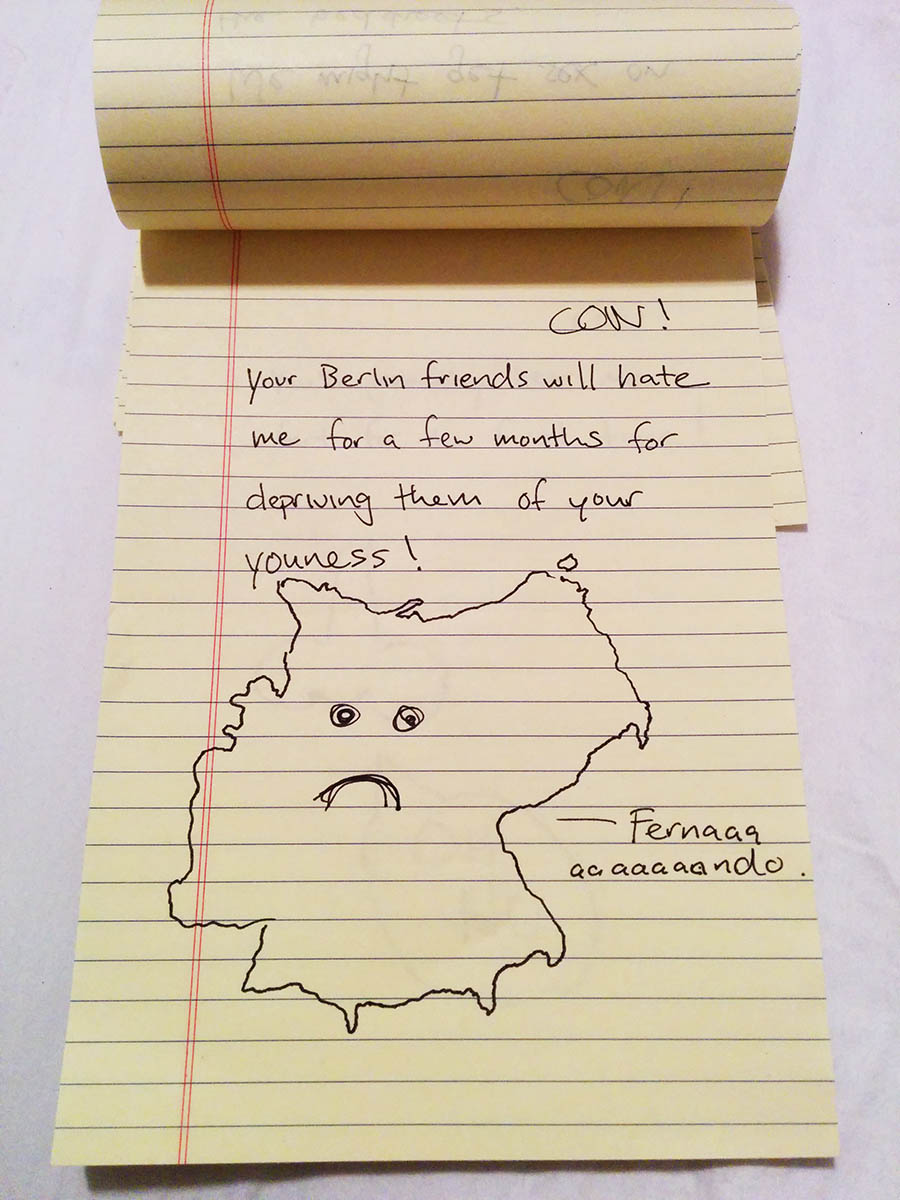 CON!
your Berlin friends will hate
me for a few months for
depriving them of your
youness!
— Fernaaa
aaaaaaaando.